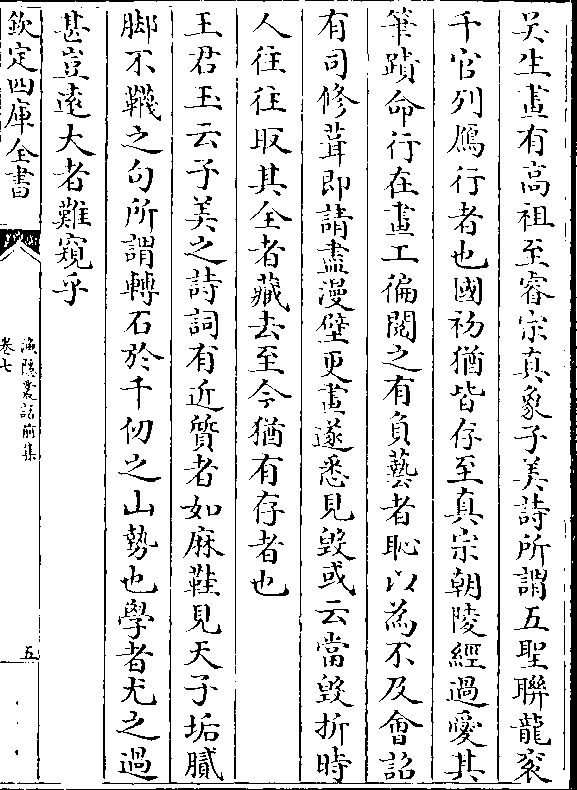 吴生畫有髙祖至睿宗真象子美詩所謂五聖聨龍衮
千官列鴈行者也國初猶皆存至真宗朝陵經過愛其
筆蹟命行在畫工徧閲之有負藝者恥以為不及會詔
有司修葺即請盡漫壁更畫遂悉見毁或云當毁折時
人往往取其全者藏去至今猶有存者也
王君玉云子美之詩詞有近質者如麻鞋見天子垢膩
脚不韈之句所謂轉石於千仞之山勢也學者尤之過
甚豈逺大者難窺乎
欽定四庫全書
漁隱叢話前集
卷七
五